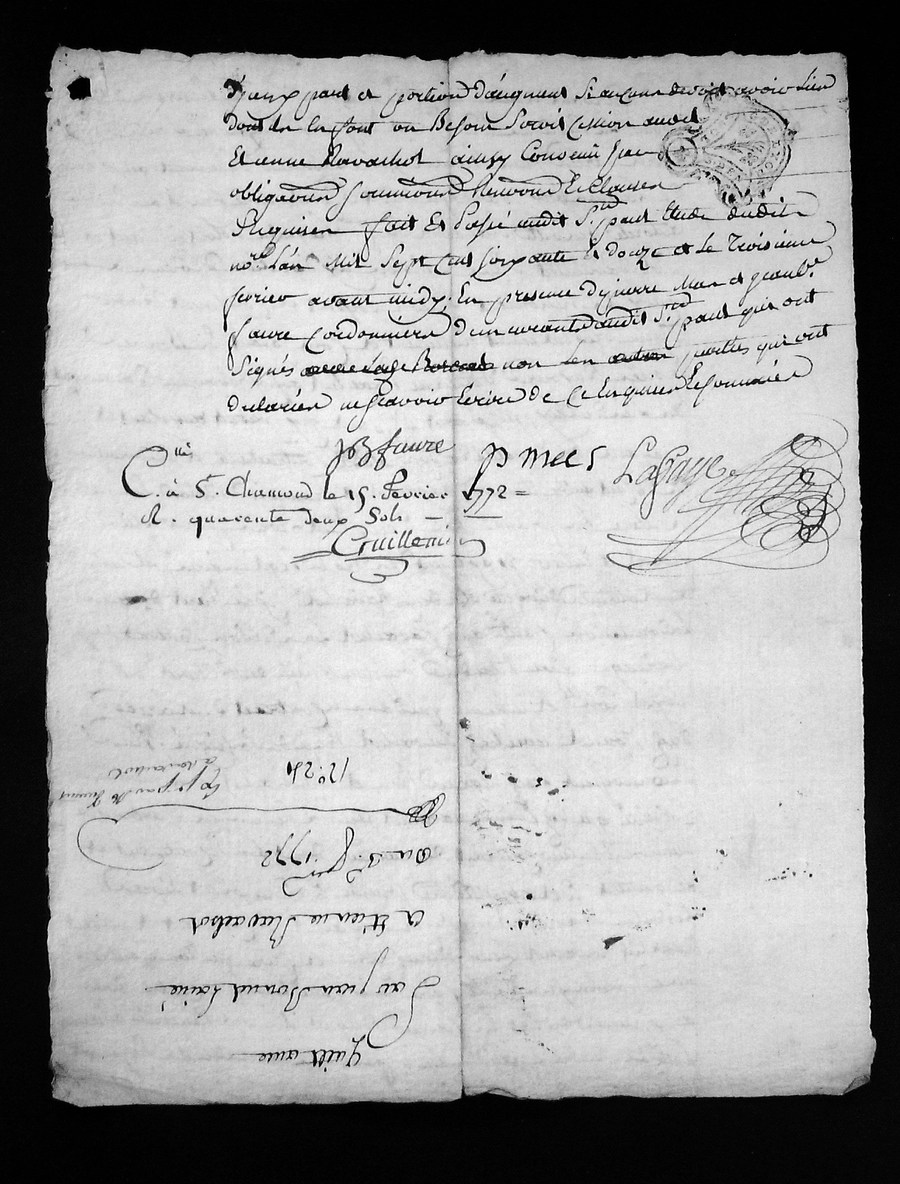 d'yceux part et portion d'augment si aucune devoit avoir lieu
dont ils en font un Besoin cession audit
Etienne Ravachol ainsy Convenu par
obligaõns soumissions Renonciaõns Et Clauses
Requises fait Et Passé audit St paul Etude dudit
nore L'an Mil Sept Cent soixante Et douze et le Troisieme
fevrier avant midy En presence de pierre Mees et jean bte
faure Cordonniers demeurants audit St paul qui ont
Signés non les parties qui ont
declarées ne scavoir Ecrire de Ce Enquises Et Sommées
JB faure
p mees
Lafaye
C.llé à St. Chamond le 15. Fevrier 1772 =
R. quarente deux Sols —
Quittance
par jean Bonnet
a Etienne Ravachol
Du 3. fr 1772